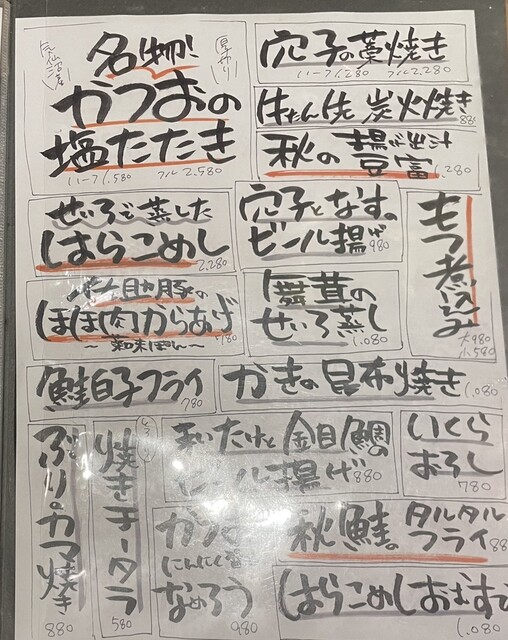 気仙沼産
名物!
早やり
かつおの
塩たたき
ハーフ1,580 フル2,580
穴子の藁焼き
ハーフ1,280 フル2,280
牛たん先炭火焼き
880
秋の揚げ出汁
豆富
1,280
せいろで蒸した
はらこめし
2,280
穴子となすの
ビール揚げ
980
もつ煮込み
大980
小580
助豚の
ほほ肉からあげ
780
舞茸の
せいろ蒸し
1,080
鮭白子フライ
780
かきの昆布焼き
1,080
ぶりのカマ焼き
880
焼きチータラ
580
まいたけと金目鯛の
ビール揚げ
880
いくら
おろし
780
かつおの
にんにく
なめろう
980
秋鮭のタルタル
フライ
88
はらこめしおむすび
1,080